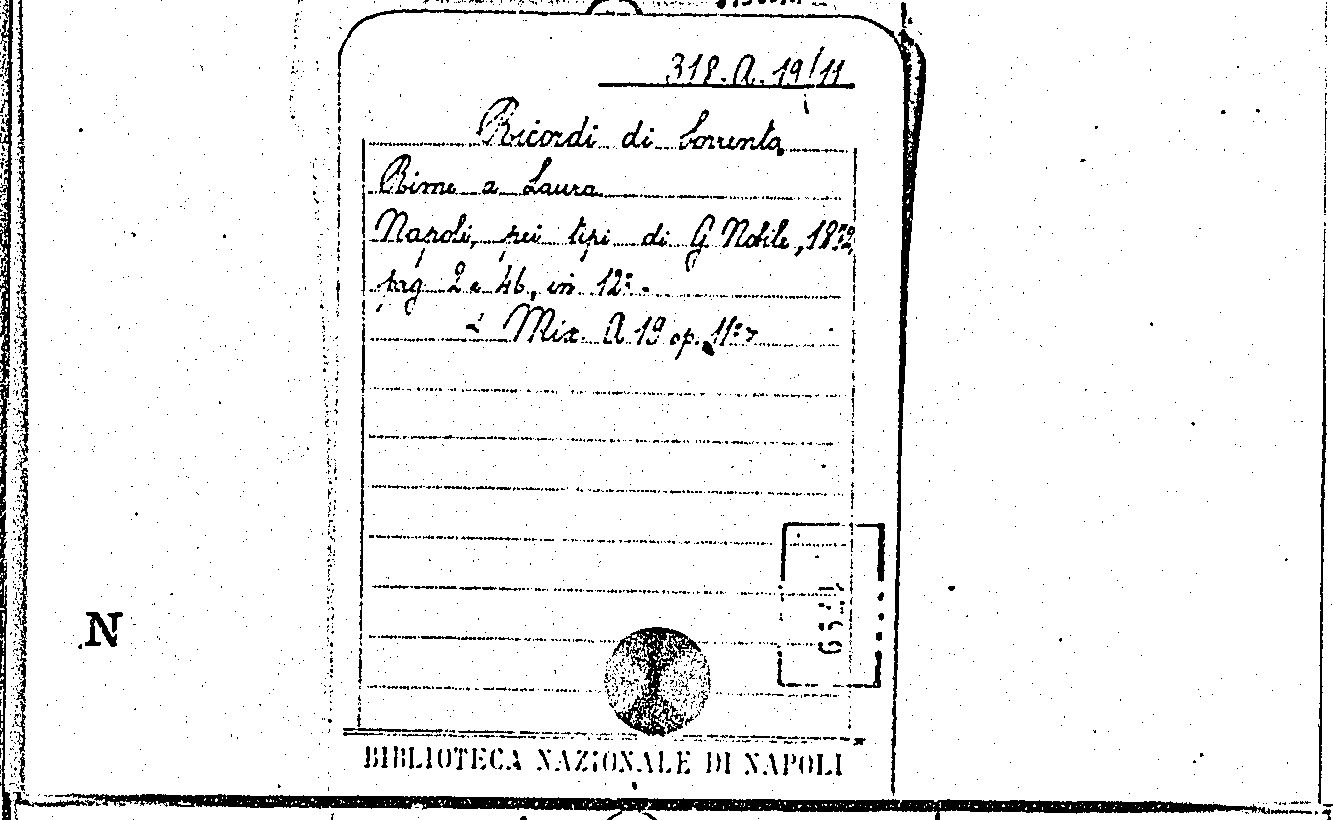 318.A.19/11
Ricordi di Sorrento
Rime a Laura
Napoli, pei tipi di G Nobile, 18
pag 2 e 46, in 12º.
Mix. A 19 op. 11
N
BIBLIOTECA NAZIONALE DI NAPOLI